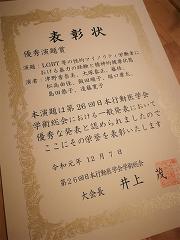 表彰状
優秀演題賞
演題：LGBT等の性的マイノリティ労働者
における暴力の経験と精神的健康状態
演者：津野香奈美、大塚泰正、藤桂、
松高由佳、飯田順子、堀口康太、
島田恭子、遠藤寛子
本演題は第26回日本行動医学会
学術総会における一般発表において
優秀な発表と認められましたので
ここにその栄誉を表彰いたします
令和元年12月7日
第26回日本行動医学会学術総会
大会長 井上 茂